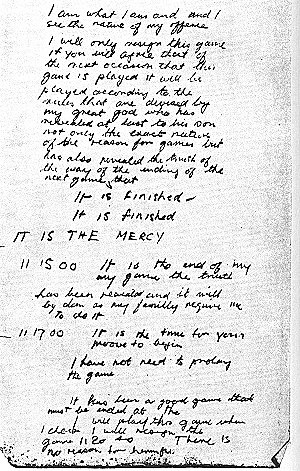 I am what I am and and I
see the nature of my offence
I will only resign this game
if you will agree that of
the next occasion that this
game is played it will be
played according to the
rules that are devised by
my great god who has
revealed at last to his son
not only the exact nature
of the reason for games but
has also revealed the truth of
the way of the ending of the
next game that
It is finished -
It is finished
IT IS THE MERCY
11 15 00 It is the end of my
my game the truth
has been revealed and it will
be done as my family require me
to do it
11 17 00 It is the time for your
move to begin
I have not need to prolong
the game
It has been a good game that
must be ended at the
I will play this game when
I choose I will resign the
game 11 20 40 There is
no reason for harmful